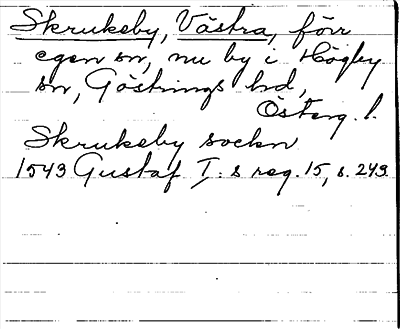 Skrukeby, Västra, förr
egen sn, nu by i Högby
sn, Göstrings hd,
Österg. l.
Skrukeby sockn
1543 Gustaf I:s reg. 15, s. 249.